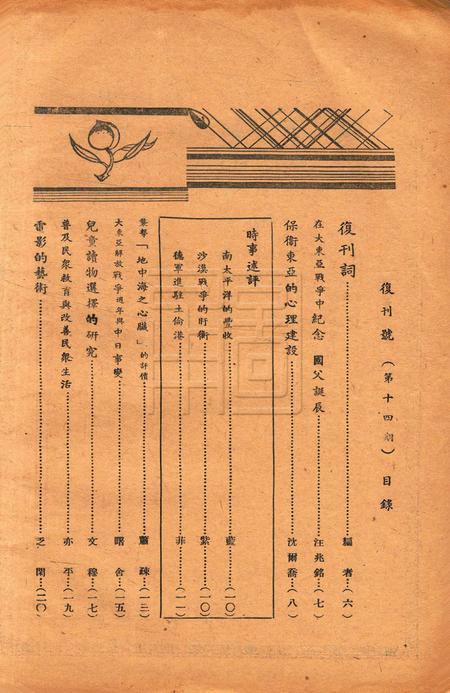 復刊號（第十四期）目錄
復刊詞……編者（六）
在大東亞戰爭中紀念 國父誕辰……汪兆銘（七）
保衛東亞的心理建設……沈爾喬（八）
時事述評
南太平洋的豐收……藍（一〇）
沙漠戰爭的盱衡……紫（一〇）
德軍進駐土倫港……菲（一一）
「地中海之心臟」的評價……蕭疎（一三）
大東亞解放戰爭週年與中日事變……曙舍（一五）
兒童讀物選擇的研究……文穆（一七）
普及民衆教育與改善民衆生活……亦平（一九）
電影的藝術……芝閑（二〇）